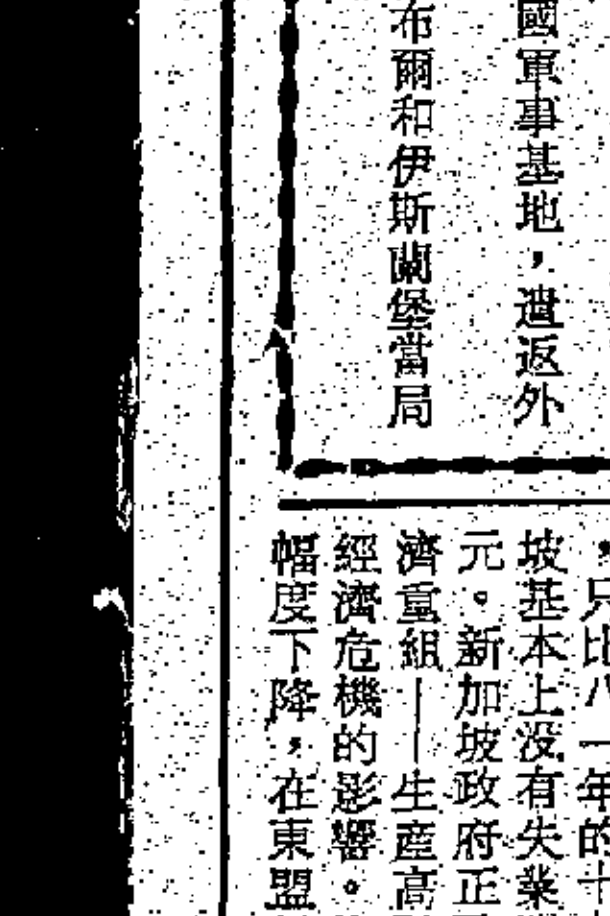 國軍事基地，遣返外
布爾和伊斯蘭堡當局
，只比八一年的十
坡基本上没有失業
元。新加坡政府正
濟重組—生産高
經濟危機的影響。
幅度下降，在東盟